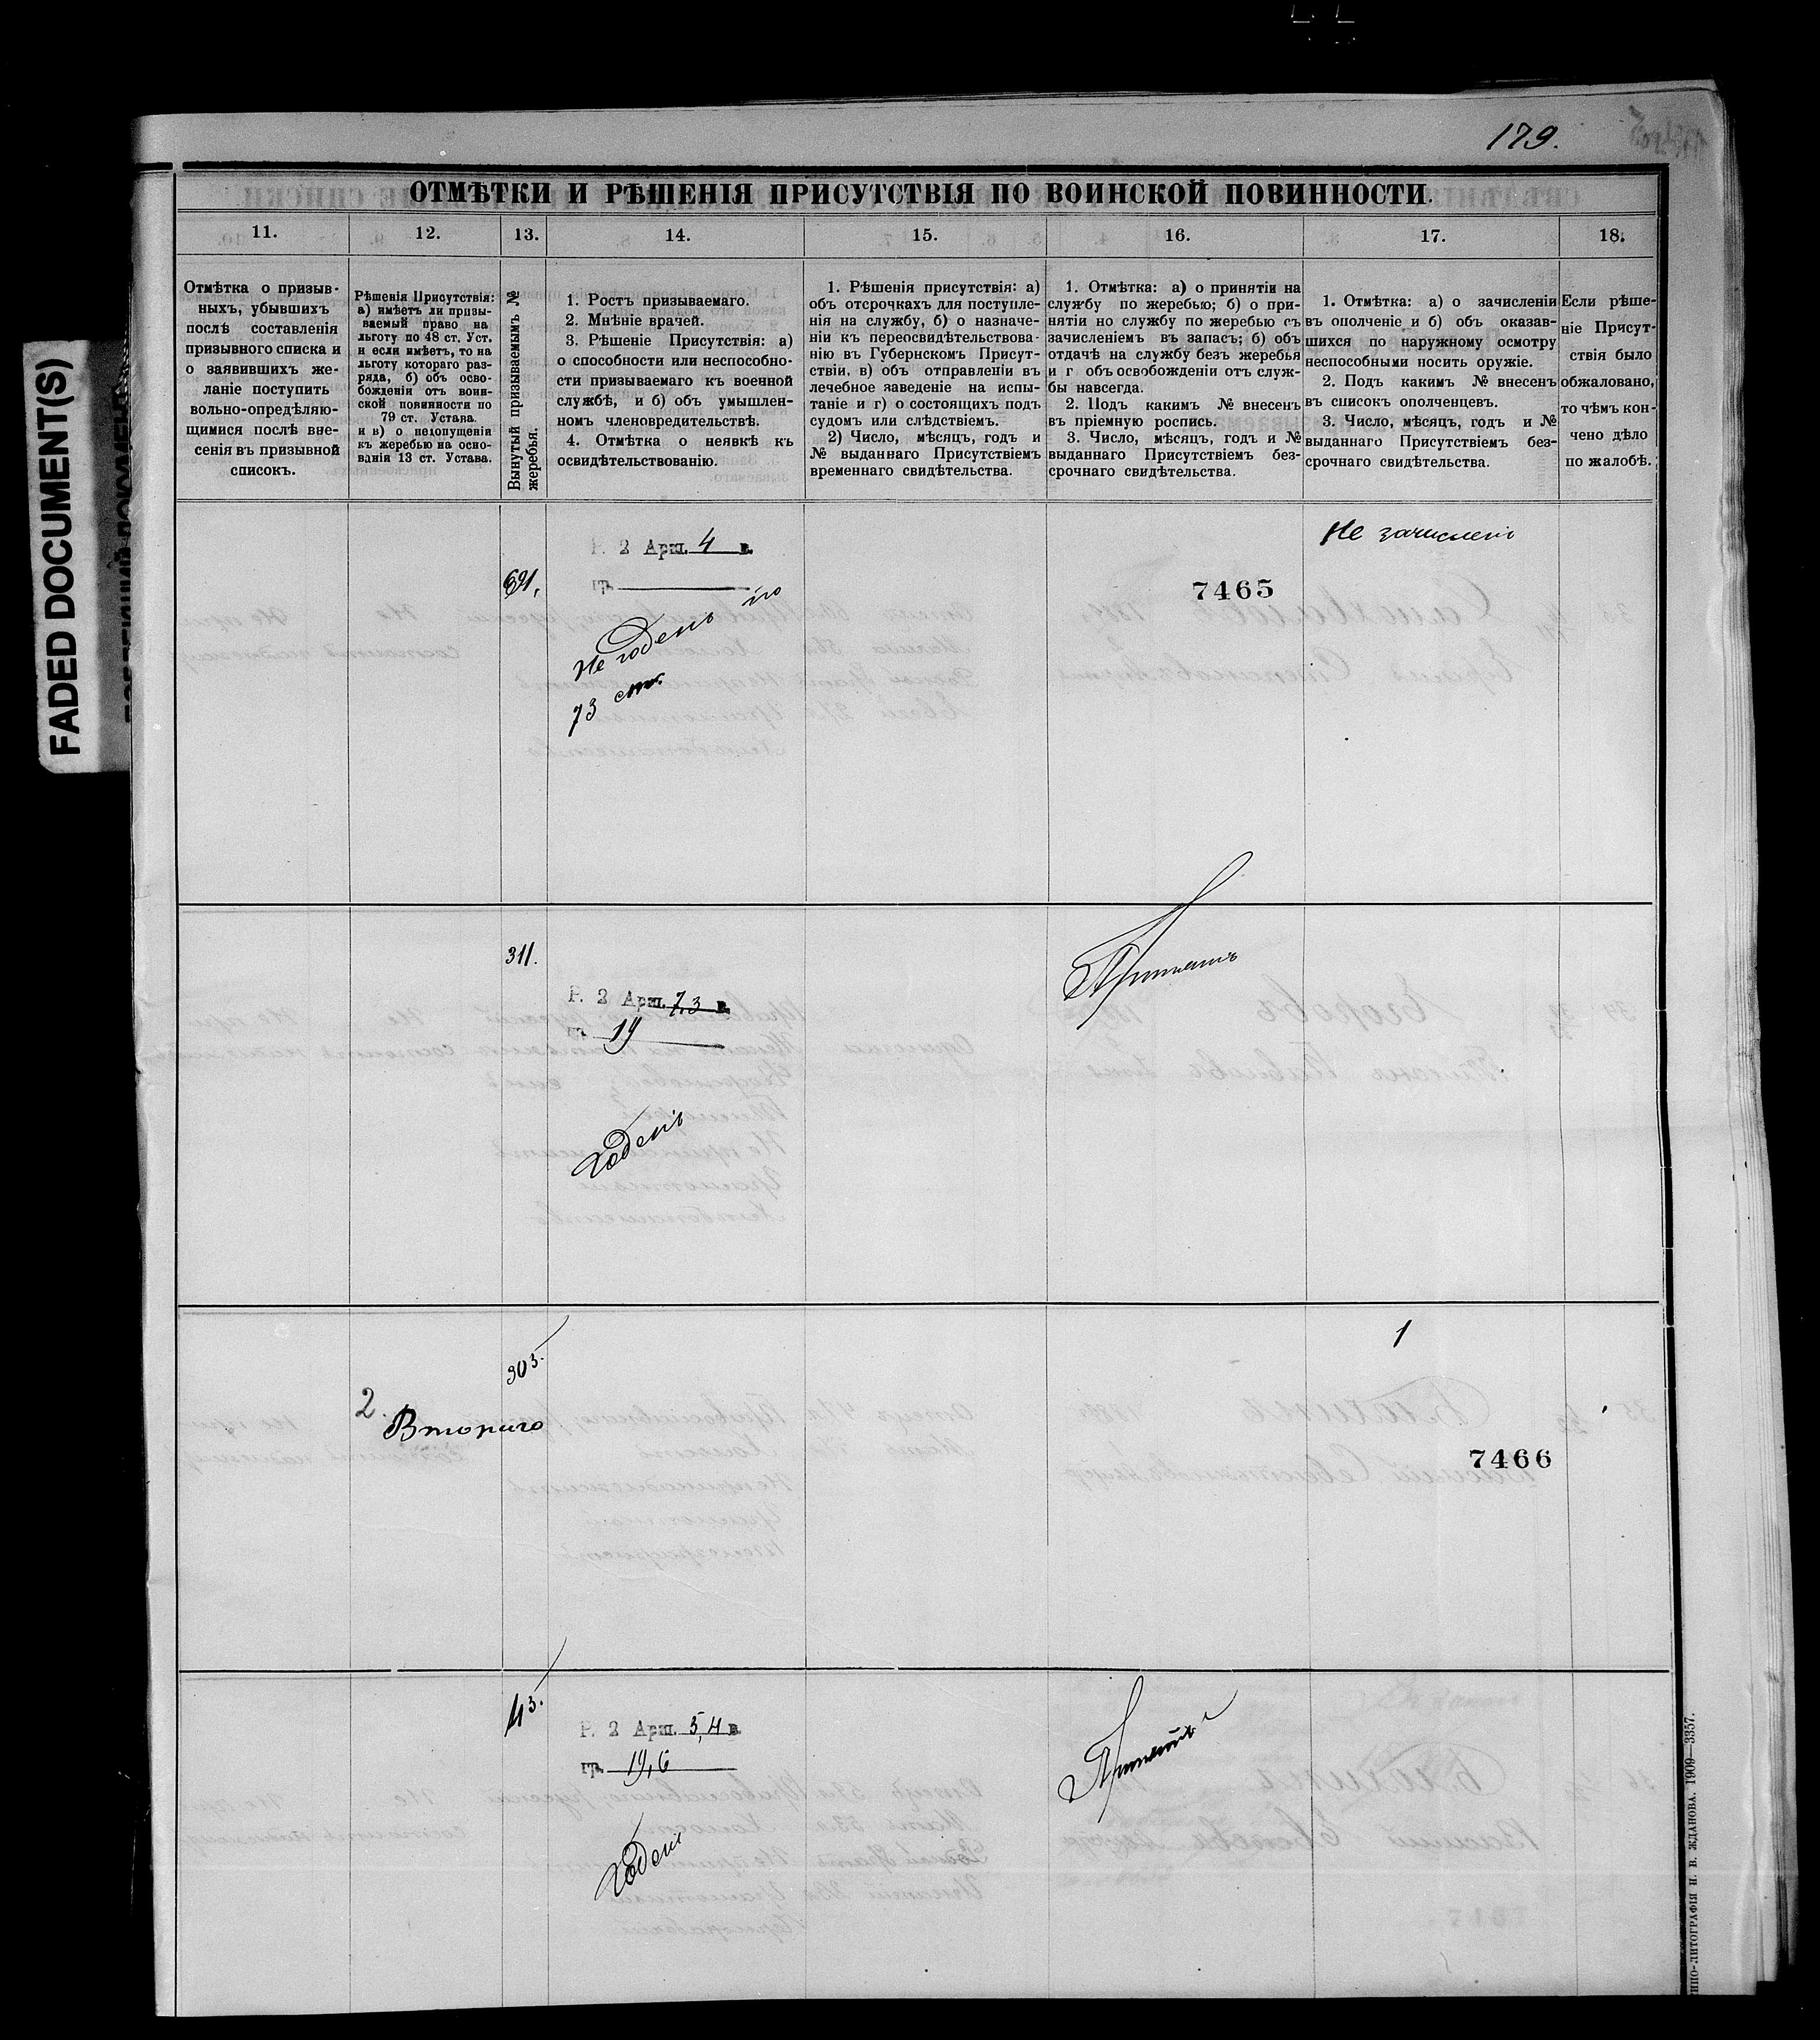 179.
FADED DOCUMENT(S)
ОТМѢТКИ И РѢШЕНІЯ ПРИСУТСТВІЯ ПО ВОИНСКОЙ ПОВИННОСТИ.
11.
12.
13.
14.
15.
16.
17.
18.
Отмѣтка о призыв-
ныхъ, убывшихъ
послѣ составленія
призывного списка и
о заявившихъ же-
ланіе поступить
вольно-опредѣляю-
щимися послѣ вне-
сенія въ призывной
списокъ.
Рѣшенія Присутствія:
а) имѣетъ ли призы-
ваемый право на
льготу по 48 ст. Уст.
и если имѣетъ, то на
льготу котораго раз-
ряда, б) объ осво-
божденіи отъ воин-
ской повинности по
79 ст. Устава.
и в) о недопущеніи
къ жеребью на осно-
ваніи 13 ст. Устава.
Вынутый призываемымъ №
жеребья.
1. Ростъ призываемаго.
2. Мнѣніе врачей.
3. Рѣшеніе Присутствія: а)
о способности или неспособно-
сти призываемаго къ военной
службѣ, и б) объ умышлен-
номъ членовредительствѣ.
4. Отмѣтка о неявкѣ къ
освидѣтельствованію.
1. Рѣшенія присутствія: а)
объ отсрочкахъ для поступле-
нія на службу, б) о назначе-
ніи къ переосвидѣтельствова-
нію въ Губернскомъ Присут-
ствіи, в) объ отправленіи въ
лечебное заведеніе на испы-
таніе и г) о состоящихъ подъ
судомъ или слѣдствіемъ.
2) Число, мѣсяцъ, годъ и
№ выданнаго Присутствіемъ
временнаго свидѣтельства.
1. Отмѣтка: а) о принятіи на
службу по жеребью; б) о при-
нятіи но службу по жеребью съ
зачисленіемъ въ запасъ; б) объ
отдачѣ на службу безъ жеребья
и г объ освобожденіи отъ служ-
бы навсегда.
2. Подъ какимъ № внесенъ
въ пріемную роспись.
3. Число, мѣсяцъ, годъ и №
выданнаго Присутствіемъ без-
срочнаго свидѣтельства.
1. Отмѣтка: а) о зачисленіи
въ ополченіе и б) объ оказав-
шихся по наружному осмотру
неспособными носить оружіе.
2. Подъ какимъ № внесенъ
въ списокъ ополченцевъ.
3. Число, мѣсяцъ, годъ и №
выданнаго Присутствіемъ без-
срочнаго свидѣтельства.
Если рѣше-
ніе Присут-
ствія было
обжаловано,
то чѣмъ кон-
чено дѣло
по жалобѣ.
691.
Р. 2 Арш. 4 в.
гр.
Не годенъ по
73 ст.
7465
Не зачисленъ
311.
Р. 2 Арш. 7,3 в.
гр. 19
Годенъ
Принятъ
303.
2.
Второго
1
7466
43.
Р. 2 Арш. 5,4 в.
гр. 19,6
Годенъ
Принятъ
ПО-ЛИТОГРАФІЯ Н. В. ЖДАНОВА. 1909—3357.